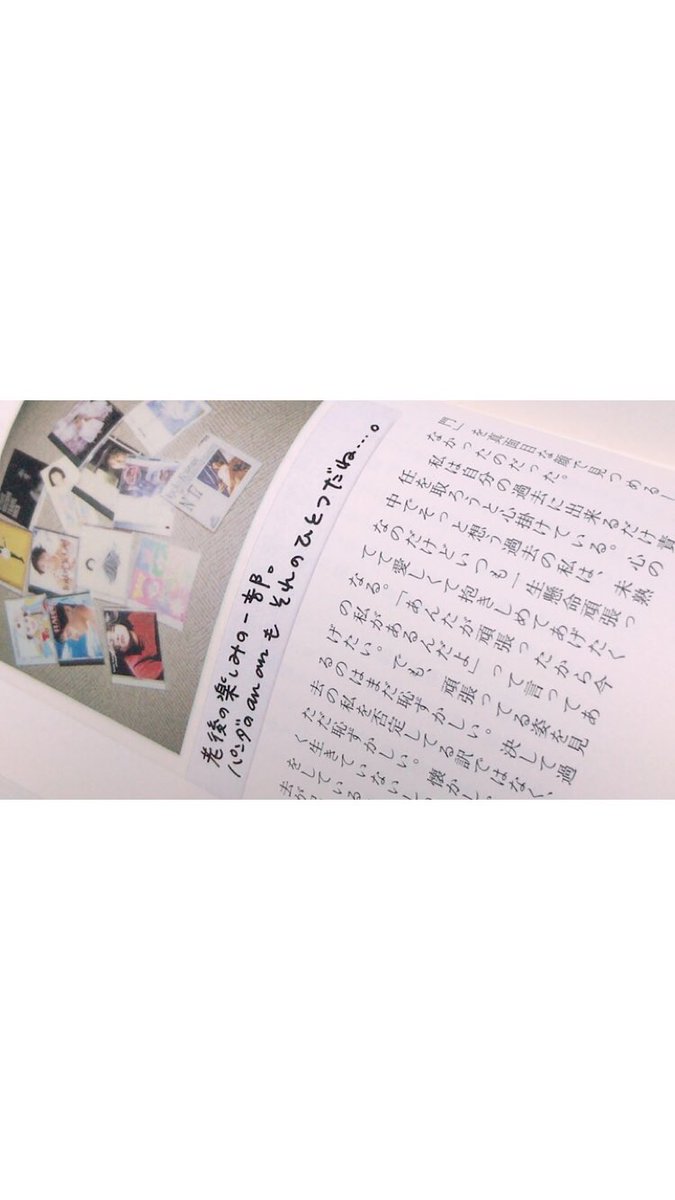 門」を真面目な顔で見つめる
なかったのだった。
私は自分の過去に出来るだけ責
任を取ろうと心掛けている。心の
中でそっと想う過去の私は、未熟
なのだけどいつも一生懸命頑張っ
てて愛しくて抱きしめてあげたく
なる。「あんたが頑張ったから今
の私があるんだよ」って言ってあ
げたい。でも、頑張ってる姿を見
るのはまだ恥ずかしい。決して過
去の私を否定してる訳ではなく、
ただ恥ずかしい。懐かし
く生きていない
をしている
去が
老後の楽しみの一部。
パンダのan anも それのひとつだね…。